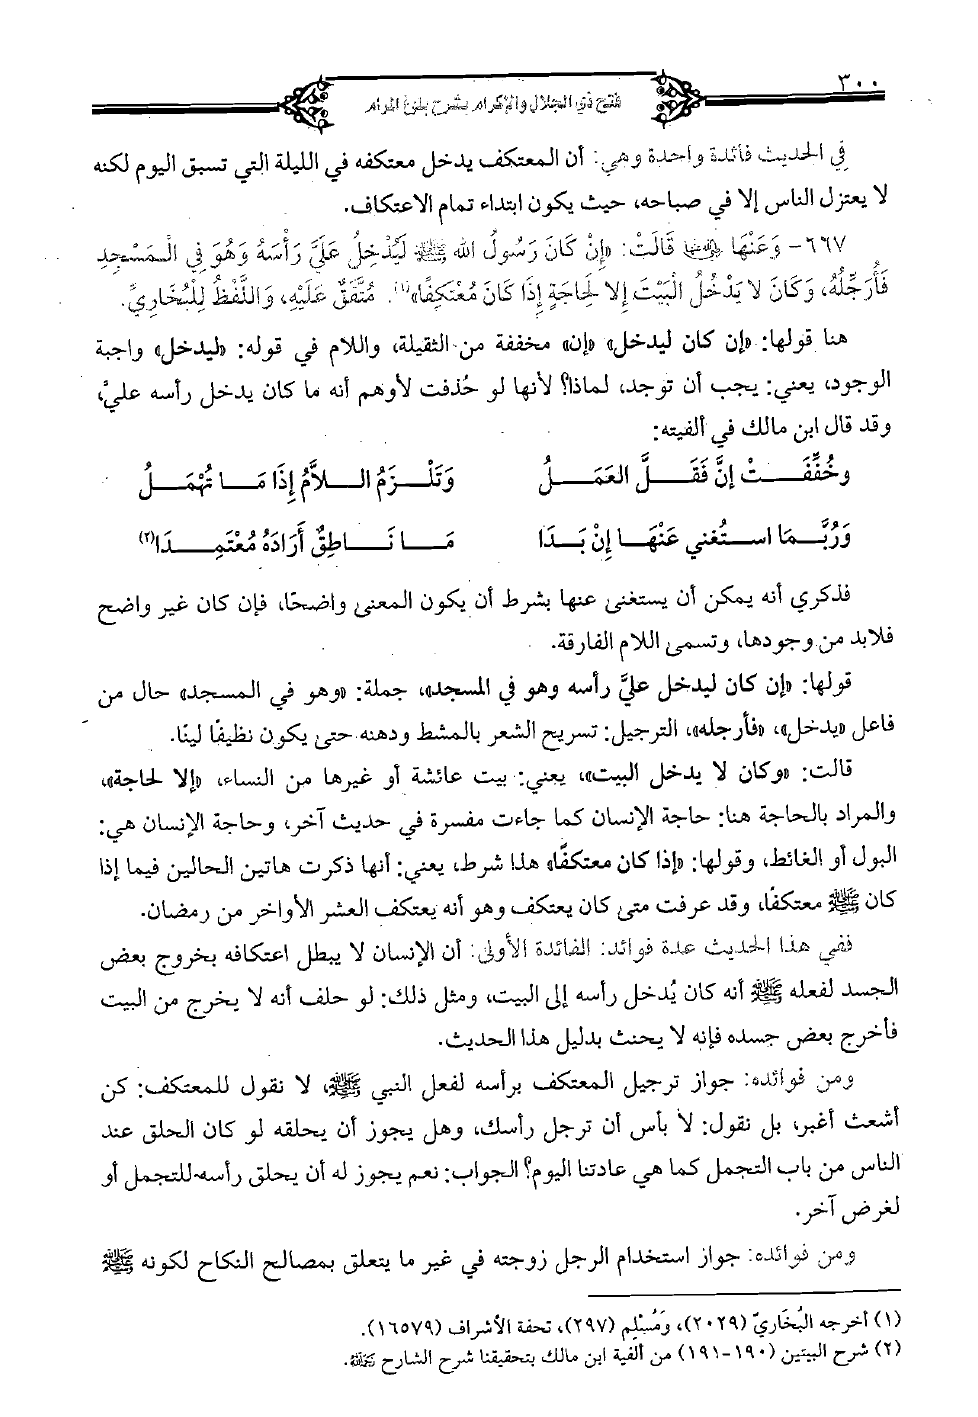 ٣٠٠
فتح ذي الجلال والإكرام بشرح بلوغ المرام
في الحديث فائدة واحدة وهي: أن المعتكف يدخل معتكفه في الليلة التي تسبق اليوم لكنه
لا يعتزل الناس إلا في صباحه، حيث يكون ابتداء تمام الاعتكاف.
٦٦٧- وَعَنْهَا رضي الله عنها قَالَتْ: «إِنْ كَانَ رَسُولُ الله ﷺ لَيُدْخِلُ عَلَيَّ رَأْسَهُ وَهُوَ فِي الْمَسْجِدِ
فَأُرَجِّلُهُ، وَكَانَ لا يَدْخُلُ الْبَيْتَ إِلا لِحَاجَةٍ إِذَا كَانَ مُعْتَكِفًا»(١). مُتَّفَقٌ عَلَيْهِ، وَاللَّفْظُ لِلْبُخَارِيِّ.
هنا قولها: «إن كان ليدخل» «إن» مخففة من الثقيلة، واللام في قوله: «ليدخل» واجبة
الوجود، يعني: يجب أن توجد، لماذا؟ لأنها لو حُذفت لأوهم أنه ما كان يدخل رأسه عليَّ،
وقد قال ابن مالك في ألفيته:
وخُفِّفَتْ إنَّ فَقَلَّ العَمَلُ وَتَلْزَمُ اللاَّمُ إِذَا مَا تُهْمَلُ
وَرُبَّمَا استُغنِي عَنْهَا إِنْ بَدَا مَا نَاطِقٌ أَرَادَهُ مُعْتَمِدَا(٢)
فذكري أنه يمكن أن يستغنى عنها بشرط أن يكون المعنى واضحًا، فإن كان غير واضح
فلابد من وجودها، وتسمى اللام الفارقة.
قولها: «إن كان ليدخل عليَّ رأسه وهو في المسجد»، جملة: «وهو في المسجد» حال من
فاعل «يدخل»، «فأرجله»، الترجيل: تسريح الشعر بالمشط ودهنه حتى يكون نظيفًا لينًا.
قالت: «وكان لا يدخل البيت»، يعني: بيت عائشة أو غيرها من النساء، «إلا لحاجة»،
والمراد بالحاجة هنا: حاجة الإنسان كما جاءت مفسرة في حديث آخر، وحاجة الإنسان هي:
البول أو الغائط، وقولها: «إذا كان معتكفًا» هذا شرط، يعني: أنها ذكرت هاتين الحالين فيما إذا
كان ﷺ معتكفًا، وقد عرفت متى كان يعتكف وهو أنه يعتكف العشر الأواخر من رمضان.
ففي هذا الحديث عدة فوائد: الفائدة الأولى: أن الإنسان لا يبطل اعتكافه بخروج بعض
الجسد لفعله ﷺ أنه كان يُدخل رأسه إلى البيت، ومثل ذلك: لو حلف أنه لا يخرج من البيت
فأخرج بعض جسده فإنه لا يحنث بدليل هذا الحديث.
ومن فوائده: جواز ترجيل المعتكف برأسه لفعل النبي ﷺ، لا نقول للمعتكف: كن
أشعث أغبر، بل نقول: لا بأس أن ترجل رأسك، وهل يجوز أن يحلقه لو كان الحلق عند
الناس من باب التجمل كما هي عادتنا اليوم؟ الجواب: نعم يجوز له أن يحلق رأسه للتجمل أو
لغرض آخر.
ومن فوائده: جواز استخدام الرجل زوجته في غير ما يتعلق بمصالح النكاح لكونه ﷺ
(١) أخرجه البُخَاريّ (٢٠٢٩)، وَمُسْلِم (٢٩٧)، تحفة الأشراف (١٦٥٧٩).
(٢) شرح البيتين (١٩٠-١٩١) من ألفية ابن مالك بتحقيقنا شرح الشارح رحمه الله.